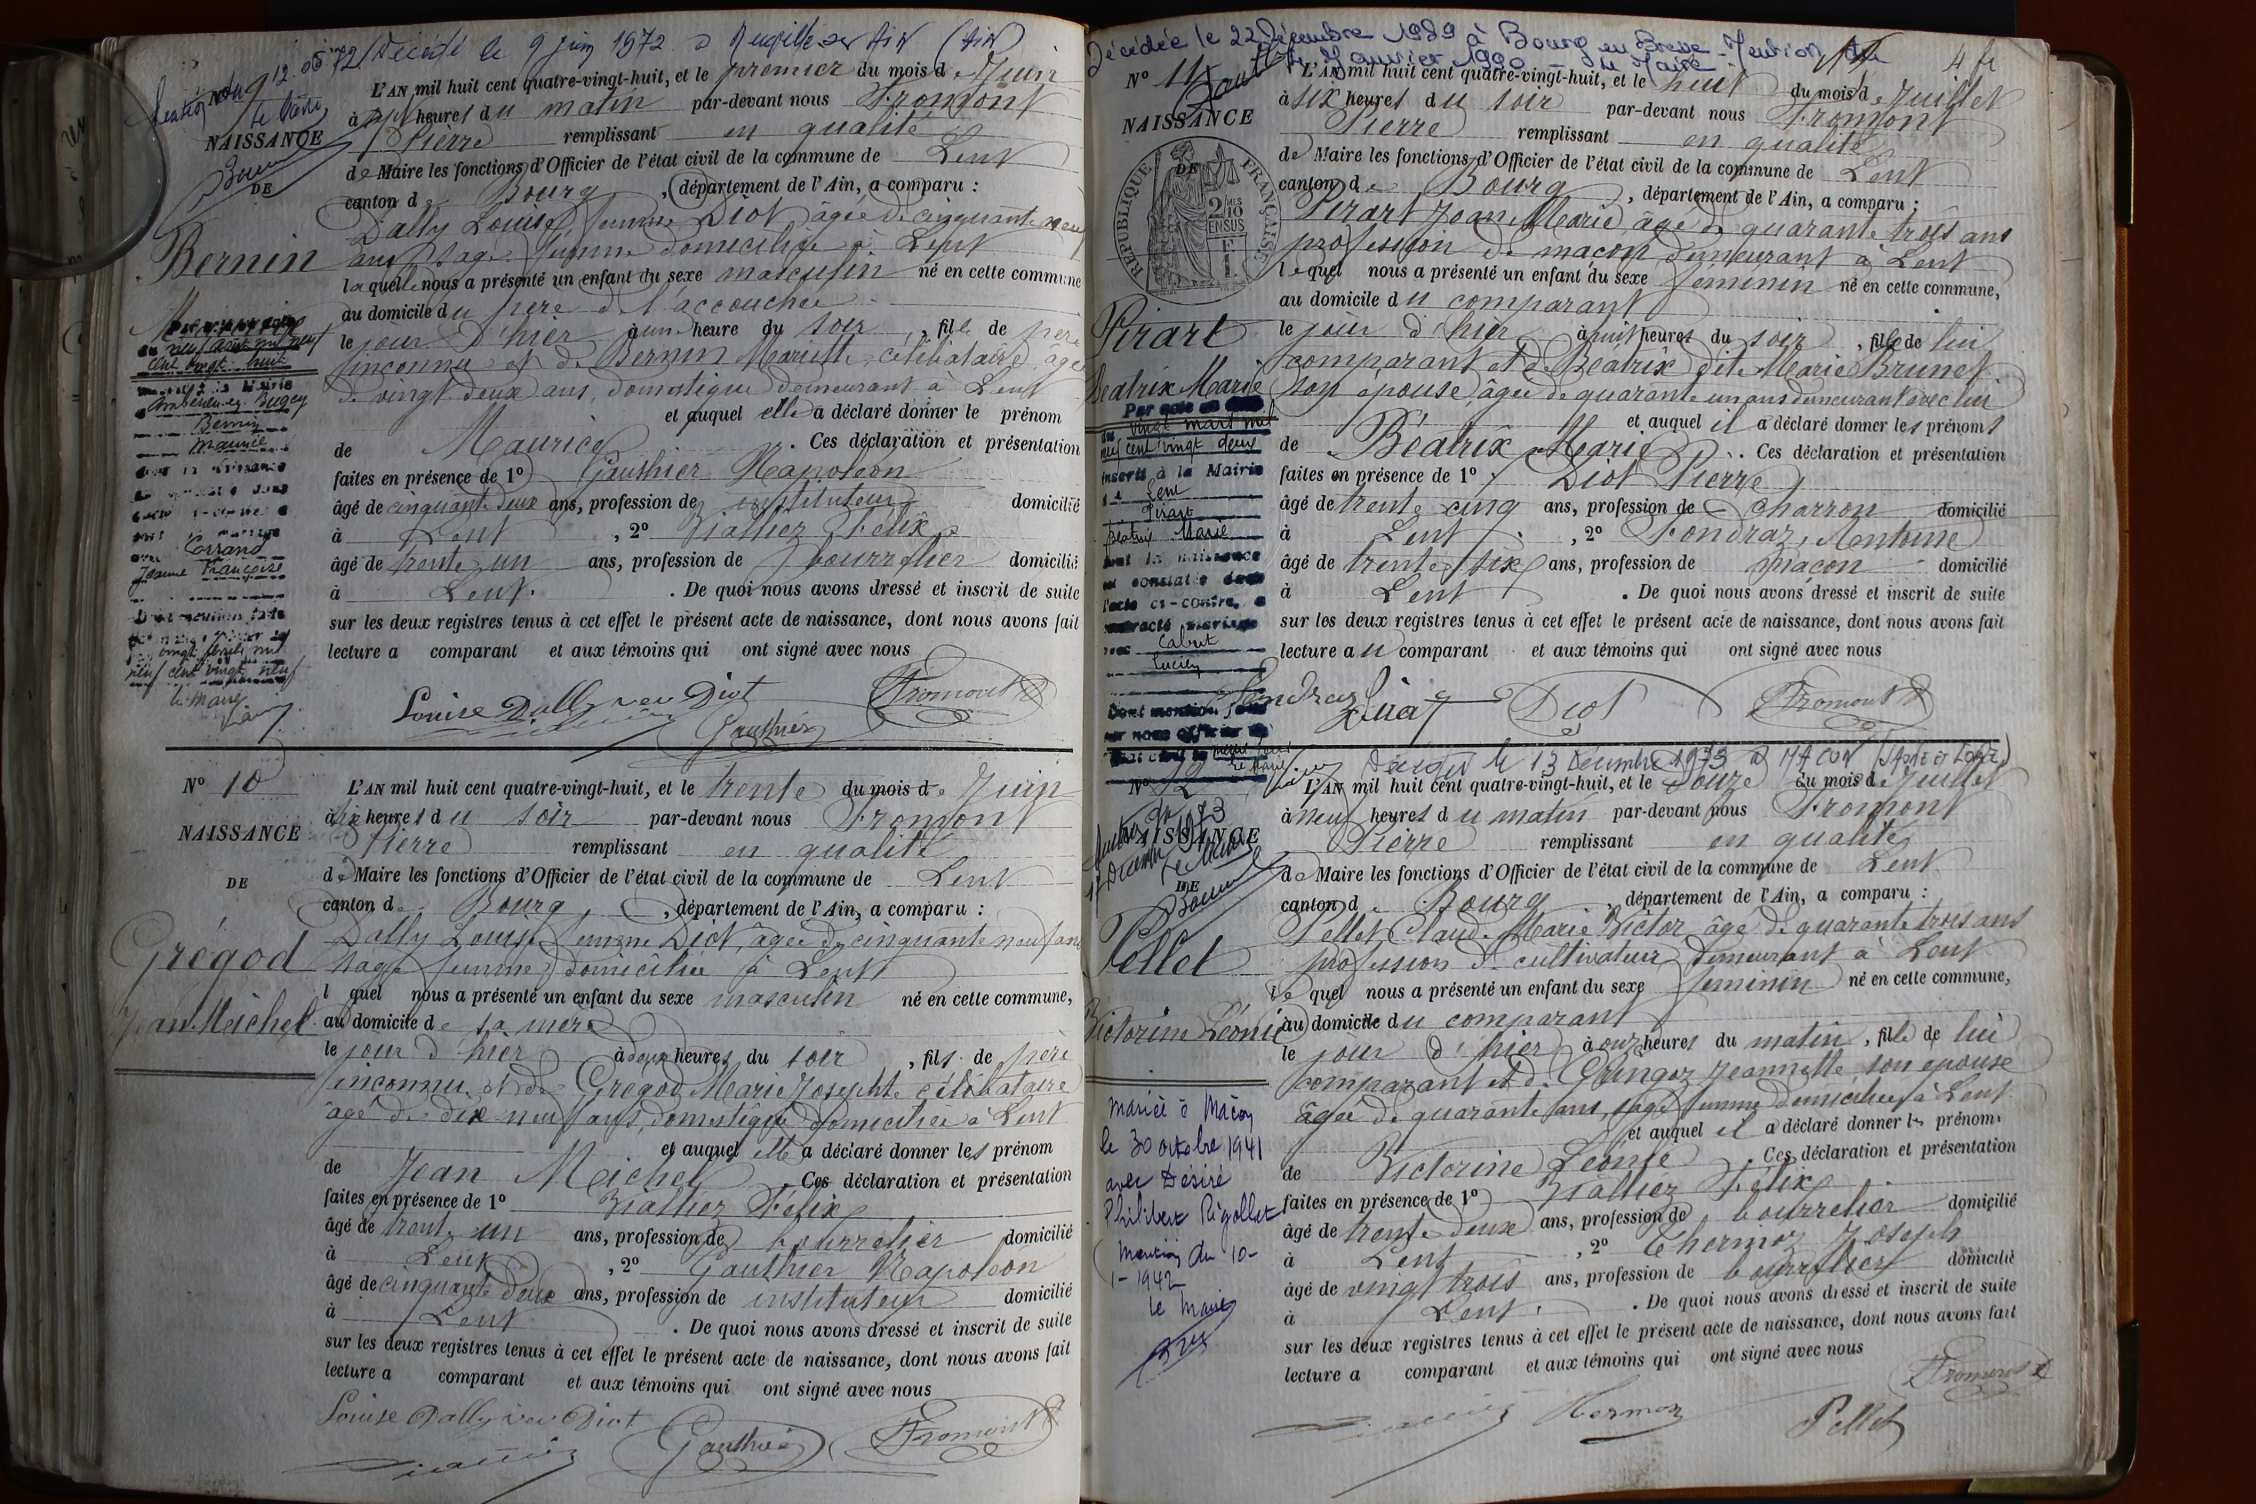 Décédé le 9 juin 1972 à Neuville sur Ain (Ain)
Mention du 9.12.
le Maire
NAISSANCE
DE
Bernin
Maurice
neuf août mil neuf
cent vingt huit
à la Mairie
Ambérieu en Bugey
Bernin
Maurice
Corrand
Jeanne Françoise
Dont mention faite
vingt
neuf cent vingt neuf
le Maire
L'AN mil huit cent quatre-vingt-huit, et le premier du mois de Juin
à sept heures du matin par-devant nous Fromont
Pierre remplissant en qualité
de Maire les fonctions d'Officier de l'état civil de la commune de Lent
canton de Bourg, département de l'Ain, a comparu :
Dally Louise femme Diot, âgée de cinquante neuf
ans sage femme domiciliée à Lent
laquelle nous a présenté un enfant du sexe masculin né en cette commune
au domicile du père de l'accouchée
le jour d'hier à une heure du soir, fils de père
inconnu et de Bernin Mariette célibataire âgée
de vingt deux ans, domestique demeurant à Lent
et auquel elle a déclaré donner le prénom
de Maurice. Ces déclaration et présentation
faites en présence de 1° Gauthier Napoléon
âgé de cinquante deux ans, profession de instituteur domicilié
à Lent, 2° Viallier Félix
âgé de trente un ans, profession de bourrelier domicilié
à Lent. De quoi nous avons dressé et inscrit de suite
sur les deux registres tenus à cet effet le présent acte de naissance, dont nous avons fait
lecture a comparant et aux témoins qui ont signé avec nous
Louise Dally veu Diot
Gauthier
Fromont
N° 10
NAISSANCE
DE
Grégod
Jean Meichel
L'AN mil huit cent quatre-vingt-huit, et le trente du mois de Juin
à six heures du soir par-devant nous Fromont
Pierre remplissant en qualité
de Maire les fonctions d'Officier de l'état civil de la commune de Lent
canton de Bourg, département de l'Ain, a comparu :
Dally Louise femme Diot, âgée de cinquante neuf ans
sage femme domiciliée à Lent
l quel nous a présenté un enfant du sexe masculin né en cette commune,
au domicile de sa mère
le jour d'hier à deux heures du soir, fils de père
inconnu et de Grégod Marie Josephte célibataire
âgé de dix neuf ans, domestique domiciliée à Lent
et auquel elle a déclaré donner les prénom
de Jean Meichel Ces déclaration et présentation
faites en présence de 1° Viallier Félix
âgé de trente un ans, profession de bourrelier domicilié
à Lent, 2° Gauthier Napoléon
âgé de cinquante deux ans, profession de instituteur domicilié
à Lent. De quoi nous avons dressé et inscrit de suite
sur les deux registres tenus à cet effet le présent acte de naissance, dont nous avons fait
lecture a comparant et aux témoins qui ont signé avec nous
Louise Dally veu Diot
Gauthier
Fromont
Décédée le 22 Décembre 1989 à Bourg en Bresse - Mention du
Janvier 1990 - le Maire -
4 fr
N° 11
NAISSANCE
DE
RÉPUBLIQUE FRANÇAISE
2/10 EN SUS
1 F.
Pirart
Béatrix Marie
Par acte en date
du vingt mars mil
neuf cent vingt deux
inscrit à la Mairie
de Lent
Pirart
Béatrix Marie
dont la naissance
est constatée dans
l'acte ci-contre, a
contracté mariage
avec Cabut
Lucien
Dont mention faite
par nous officier de
l'état civil
le Maire
L'AN mil huit cent quatre-vingt-huit, et le huit du mois de Juillet
à six heures du soir par-devant nous Fromont
Pierre remplissant en qualité
de Maire les fonctions d'Officier de l'état civil de la commune de Lent
canton de Bourg, département de l'Ain, a comparu :
Pirart Jean Marie âgé de quarante trois ans
profession de maçon demeurant à Lent
lequel nous a présenté un enfant du sexe féminin né en cette commune,
au domicile du comparant
le jour d'hier à huit heures du soir, fille de lui
comparant et de Béatrix dite Marie Brunet
son épouse, âgée de quarante un ans demeurant avec lui
et auquel il a déclaré donner les prénoms
de Béatrix Marie. Ces déclaration et présentation
faites en présence de 1° Diot Pierre
âgé de trente cinq ans, profession de charron domicilié
à Lent, 2° Fondraz, Antoine
âgé de trente six ans, profession de maçon domicilié
à Lent. De quoi nous avons dressé et inscrit de suite
sur les deux registres tenus à cet effet le présent acte de naissance, dont nous avons fait
lecture au comparant et aux témoins qui ont signé avec nous
Fondraz
Diot
Fromont
Décédée le 13 Décembre 1973 à MACON (SAONE ET LOIRE)
N° 12
NAISSANCE
DE
Mention du
17 Décembre 1973
le Maire
Pellet
Victorine Léonie
Mariée à Macon
le 30 octobre 1941
avec Désiré
Philibert Rigollet
Mention du 10-
1-1942
le Maire
L'AN mil huit cent quatre-vingt-huit, et le douze du mois de Juillet
à neuf heures du matin par-devant nous Fromont
Pierre remplissant en qualité
de Maire les fonctions d'Officier de l'état civil de la commune de Lent
canton de Bourg, département de l'Ain, a comparu :
Pellet Claude Marie Victor âgé de quarante trois ans
profession de cultivateur demeurant à Lent
lequel nous a présenté un enfant du sexe féminin né en cette commune,
au domicile du comparant
le jour d'hier à onze heures du matin, fille de lui
comparant et de Gringoz Jeannette son épouse
âgée de quarante ans, sage femme domiciliée à Lent
et auquel il a déclaré donner les prénoms
de Victorine Léonie. Ces déclaration et présentation
faites en présence de 1° Viallier Félix
âgé de trente deux ans, profession de bourrelier domicilié
à Lent, 2° Thermoz Joseph
âgé de vingt trois ans, profession de bourrelier domicilié
à Lent. De quoi nous avons dressé et inscrit de suite
sur les deux registres tenus à cet effet le présent acte de naissance, dont nous avons fait
lecture a comparant et aux témoins qui ont signé avec nous
Fromont
Thermoz
Pellet